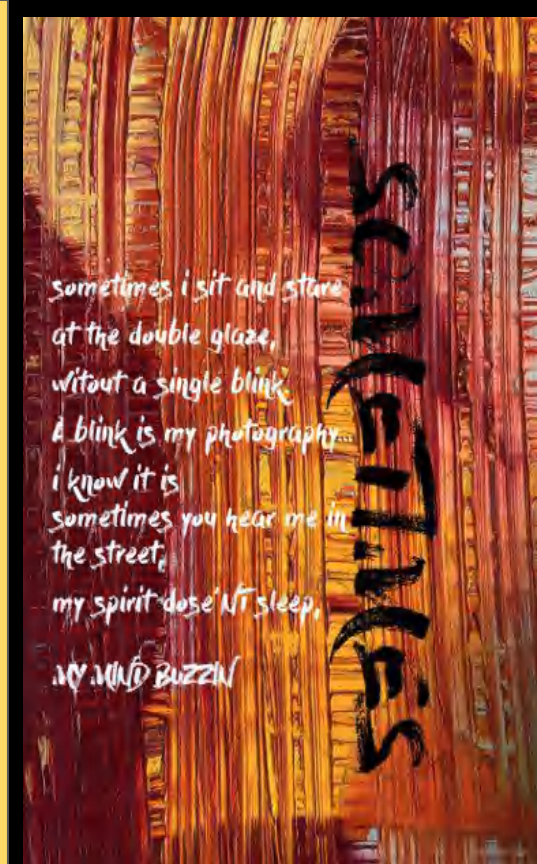 sometimes i sit and stare
at the double glaze,
witout a single blink
A blink is my photography...
i know it is
sometimes you hear me in
the street,
my spirit dose'NT sleep,
MY MIND BUZZIN
SOMETIMES